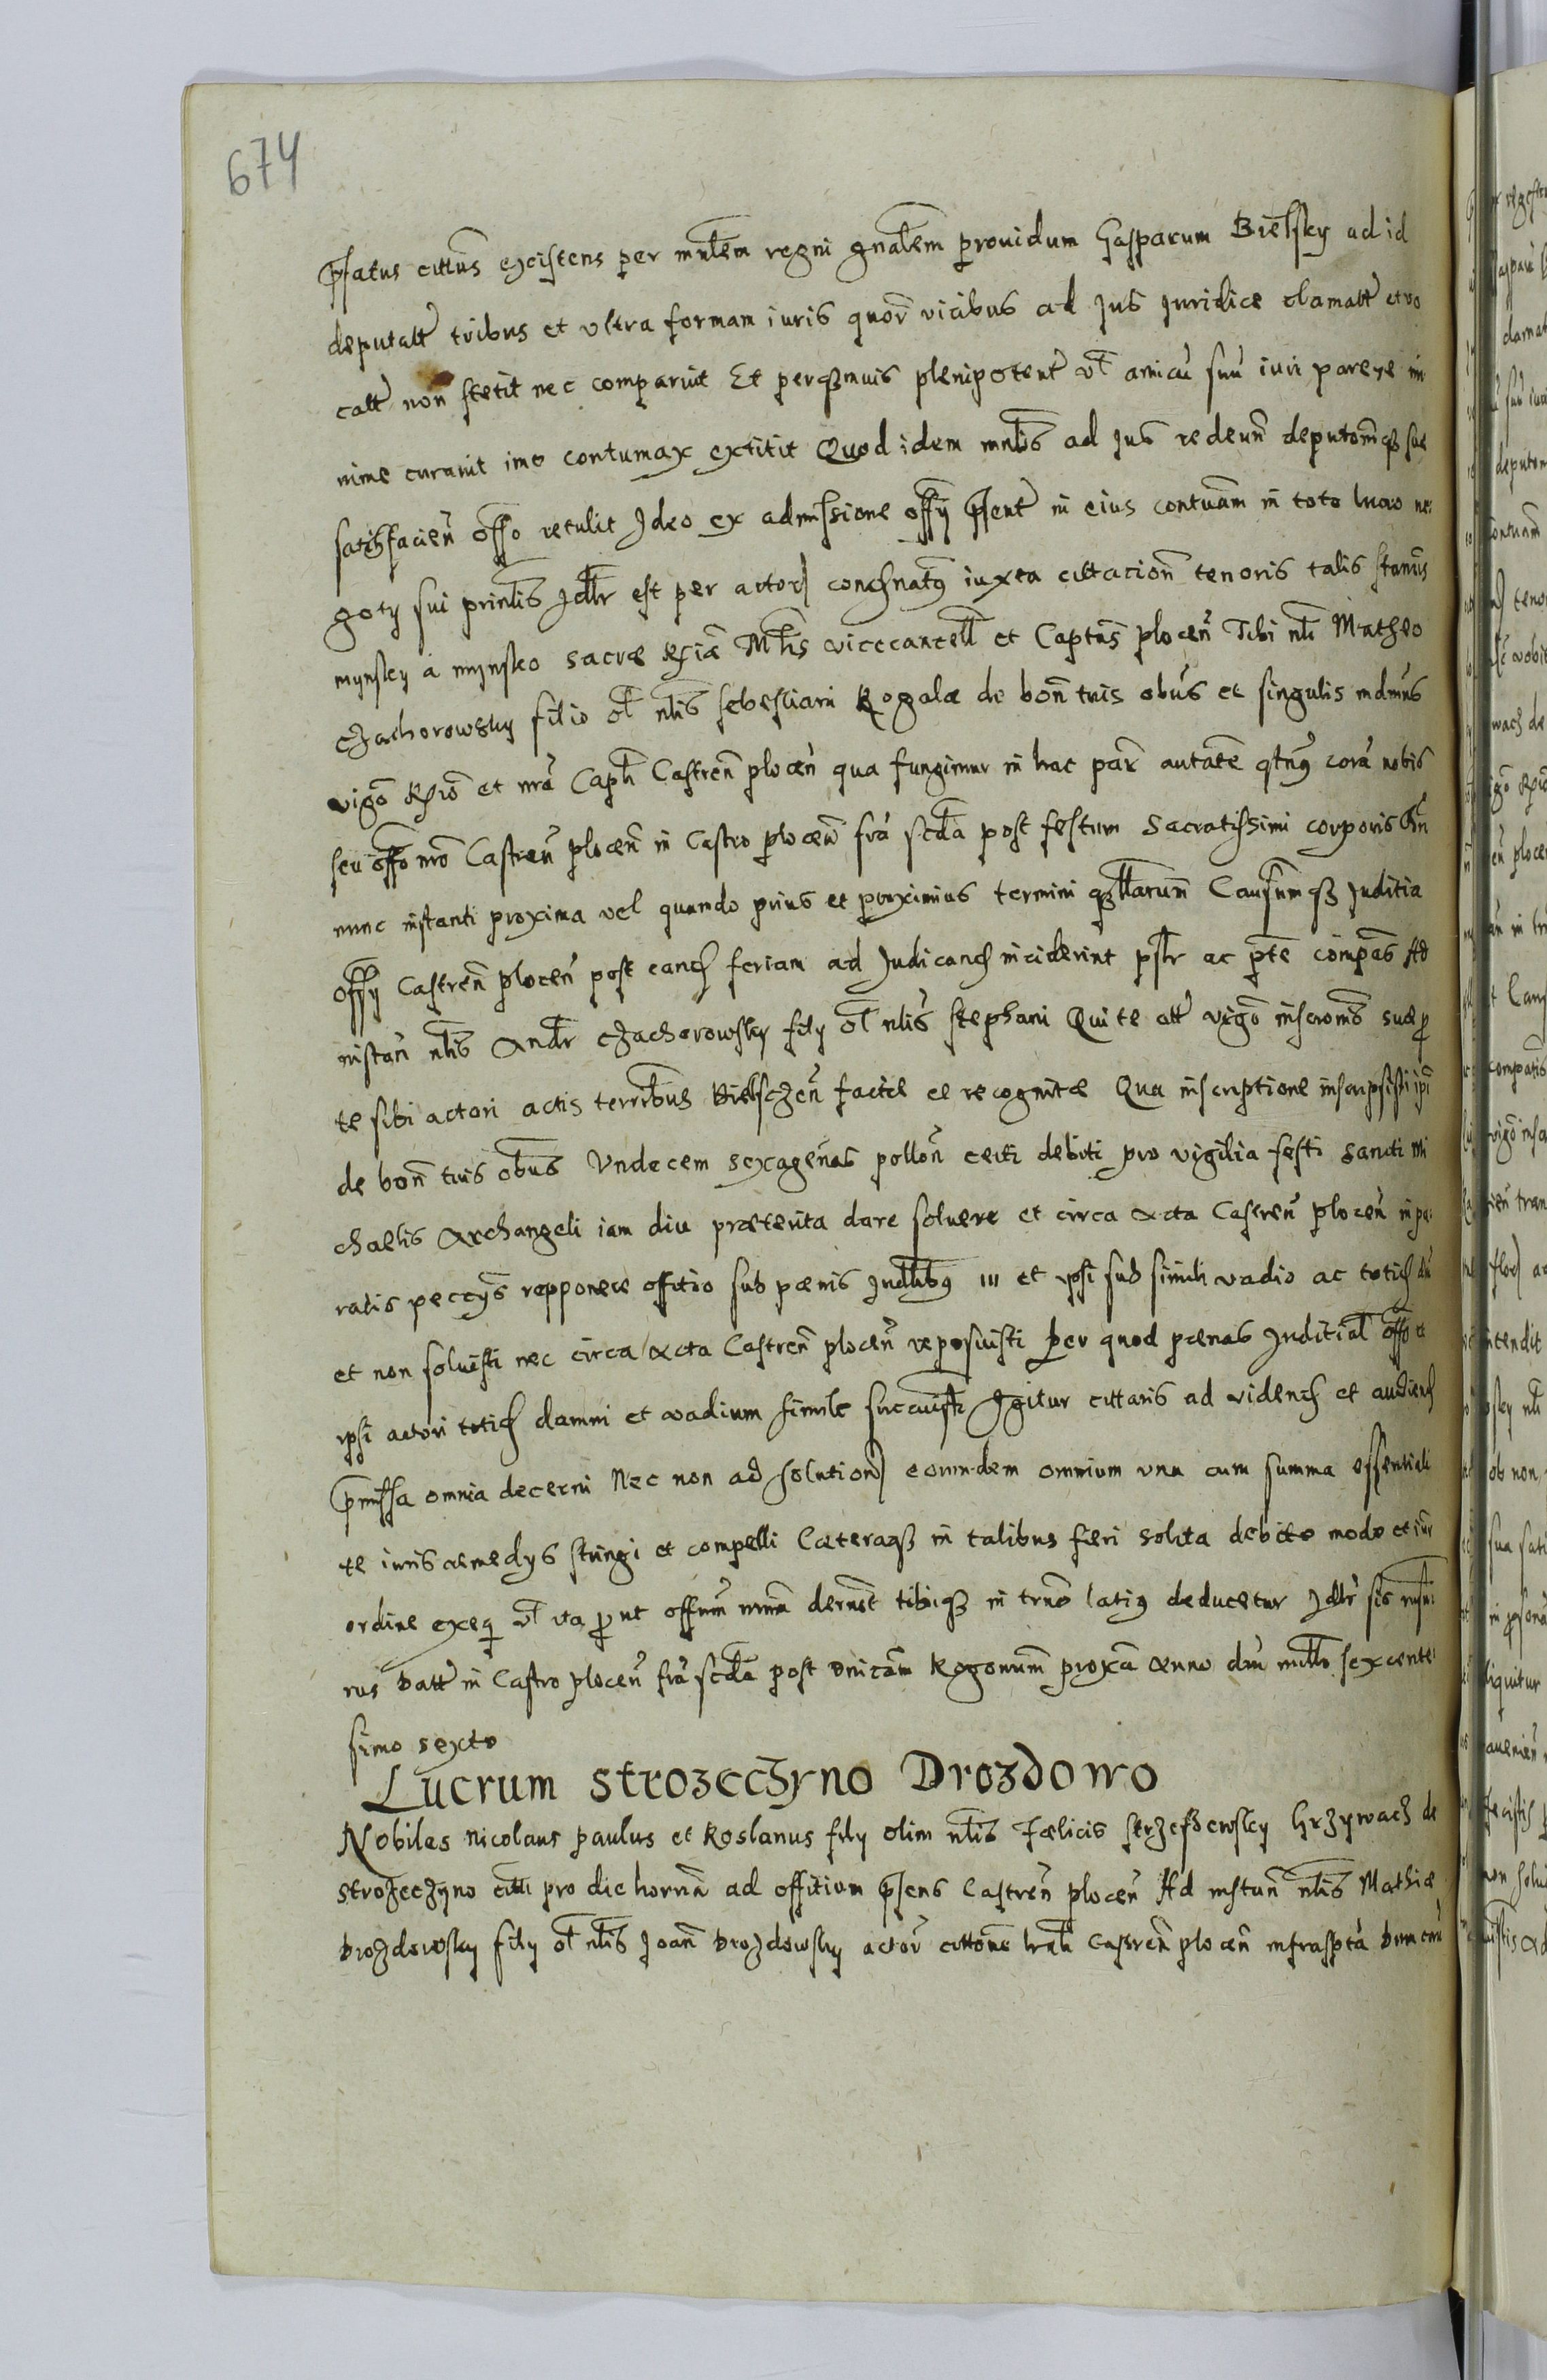 674
Psatus cittus existens per mnlem regni gnalem prouidum Gasparum Bielsky ad id
deputatt tribus et vltra formam iuris quor vicibus ad Jus Juridice clamatt et vo
catt non stetit nec comparuit Et perqzmuis plenipotent vl amicu suu iuri parere mi
nime curauit imo contumax extitit Quod idem mnlis ad Jus redeun deputomqz sue
satisfacien offo retulit Ideo ex admissione offy psent in eius contuam in toto lucro ne
goty sui prinlis Jdlr est per actor condnatus iuxta cittacion tenoris talis Stanis
mynsky a mynsko Sacræ Rgiæ Mtis vicecancell et Captns plocen Tibi nli Matheo
Czachorowsky filio ol nlis Sebestiani Rogala de bon tuis obus et singulis mdmus
vigo Rgio et nra Captli Castren plocen qua fungimur in hac par autate qtnus cora nobis
seu offo nro Castren plocen in Castro plocen fra scda post festum Sacratissimi corporis
nunc instanti proxima vel quando prius et proximius termini qzllarum Causrumqz Juditia
offy Castren plocen post eand feriam ad Judicand inciderint psllr ac pte compas Ad
instan nlis Andr Czachorowsky fily ol nlis Stephani Qui te att vigo inscromis suæ p
te sibi actori actis terrribus Bielscen factæ et recognitæ Qua inscriptione inscripsisti ipi
de bon tuis obus Vndecem sexagenas pollon certi debiti pro vigilia festi Sancti Mi
chaelis Archangeli iam diu præterita dare soluere et circa Acta Castren plocen in pa
ratis peccys repponere offitio sub pænis Judlibus III et ipsi sub simili vadio ac totid
et non soluisti nec circa Acta Castren plocen reposuisti Per quod pænas Juditial offo et
ipsi actori totid damni et vadium simile succuisti Igitur cittaris ad vidend et audiend
pmissa omnia decerni Nec non ad solution eorundem omnium vna cum summa essentiali
te iuris remedys stringi et compelli Cæteraqz in talibus fieri solita debito modo et iur
ordine exeq vl vta put offum nrum dernet tibiqz in trno latius deducetur Jdlr sis
rus Datt in Castro plocen fra scda post Dnicam Rogonum proxa Anno dni millo sexcente
simo sexto
Lucrum Strozeczyno Drozdowo
Nobiles Nicolaus Paulus et Roslanus fily olim nlis Fælicis Strzeszewsky Grzywacz de
Strozeczyno citti pro die horna ad offitium psens Castren plocen Ad instan nlis Mathiæ
Drozdowsky fily ol nlis Joan Drozdowsky actor cittone Castren plocen infraspta